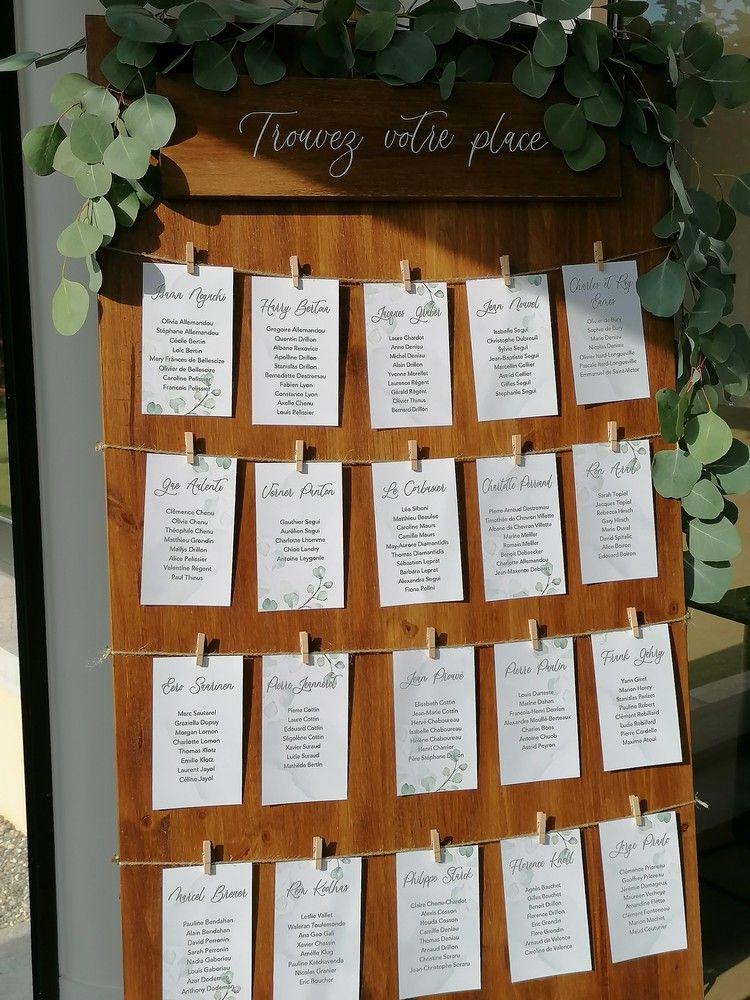 Trouvez votre place
Isamu Noguchi
Olivia Allemandou
Stéphane Allemandou
Cécile Bertin
Loïc Bertin
Mary Frances de Bellescize
Olivier de Bellescize
Caroline Pelissier
François Pelissier
Harry Bertoia
Gregoire Allemandou
Quentin Drillon
Albane Rexovice
Apolline Drillon
Stanislas Drillon
Bernadette Destremau
Fabien Lyon
Constance Lyon
Axelle Chenu
Louis Pelissier
Jacques Gruber
Laure Chardot
Anne Deniau
Michel Deniau
Alain Drillon
Yvonne Morellet
Laurence Régent
Gérald Régent
Olivier Thinus
Bernard Drillon
Jean Nouvel
Isabelle Segui
Christophe Dubreuil
Sylvie Segui
Jean-Baptiste Segui
Marcellin Cellier
Astrid Cellier
Gilles Segui
Stephanie Segui
Charles et Ray
Eames
Olivier de Bury
Sophie de Bury
Marie Deniau
Nicolas Deniau
Olivier Nard-Longueville
Pascale Nard-Longueville
Emmanuel de Saint-Victor
Gae Aulenti
Clémence Chenu
Olivia Chenu
Théophile Chenu
Matthieu Grondin
Maïlys Drillon
Alice Pelissier
Valentine Régent
Paul Thinus
Verner Panton
Gauthier Segui
Aurélien Segui
Charlotte Lhomme
Chloe Landry
Antoine Leygonie
Le Corbusier
Léa Siboni
Matthieu Beaulac
Caroline Maurs
Camille Maurs
May-Aurore Diamantidis
Thomas Diamantidis
Sébastien Leprat
Barbara Leprat
Alexandra Segui
Fiona Polini
Charlotte Perriand
Pierre-Arnaud Destremau
Timothée de Chevron Villette
Albane de Chevron Villette
Marine Meiller
Romain Meiller
Benoit Debaecker
Charlotte Allemandou
Jean-Maxence Debay
Ron Arad
Sarah Topiol
Jacques Topiol
Rebecca Hirsch
Gary Hirsch
Marie Duval
David Spitalic
Alice Boiron
Edouard Boiron
Eero Saarinen
Marc Sautarel
Graziella Dupuy
Morgan Lornon
Charlotte Lornon
Thomas Klotz
Emilie Klotz
Laurent Jayol
Céline Jayol
Pierre Jeanneret
Pierre Cottin
Laure Cottin
Edouard Cottin
Ségolène Cottin
Xavier Suraud
Lucie Suraud
Mathilde Bertin
Jean Prouvé
Elisabeth Cottin
Jean-Marie Cottin
Hervé Chaboureau
Isabelle Chaboureau
Hélène Chaboureau
Henri Chanier
Père Stéphane
Pierre Paulin
Louis Durteste
Marine Dahan
Francois-Henri Derrien
Alexandra Moullé-Berteaux
Charles Boes
Antoine Chudb
Astrid Peyron
Frank Gehry
Yann Giret
Marion Henry
Stanislas Parizet
Pauline Robert
Clément Robillard
Lucie Robillard
Pierre Cordelle
Maxime Ateui
Marcel Breuer
Pauline Bendahan
Alain Bendahan
David Perronin
Sarah Perronin
Nadia Gaboriau
Louis Gaboriau
Azar Dodeman
Anthony Dodeman
Rem Koolhas
Leslie Vallet
Waleran Toulemonde
Ana Geo Gali
Xavier Chassin
Amélie Klug
Pauline Katchavenda
Nicolas Granier
Eric Boucher
Philippe Starck
Claire Chenu-Chardot
Alexis Cosson
Houda Cosson
Camille Deniau
Thomas Deniau
Arnaud Drillon
Christine Soraru
Jean-Christophe Soraru
Florence Knoll
Agnès Bauchet
Gilles Bauchet
Benoit Drillon
Florence Drillon
Eric Grendin
Flore Grendin
Arnaud de Valence
Caroline de Valence
Jorge Prado
Clémence Prioreau
Geoffrey Prioreau
Jérémie Damageux
Maureen Verheye
Amandine Flette
Clément Fonteneau
Marion Machet
Maud Couturier